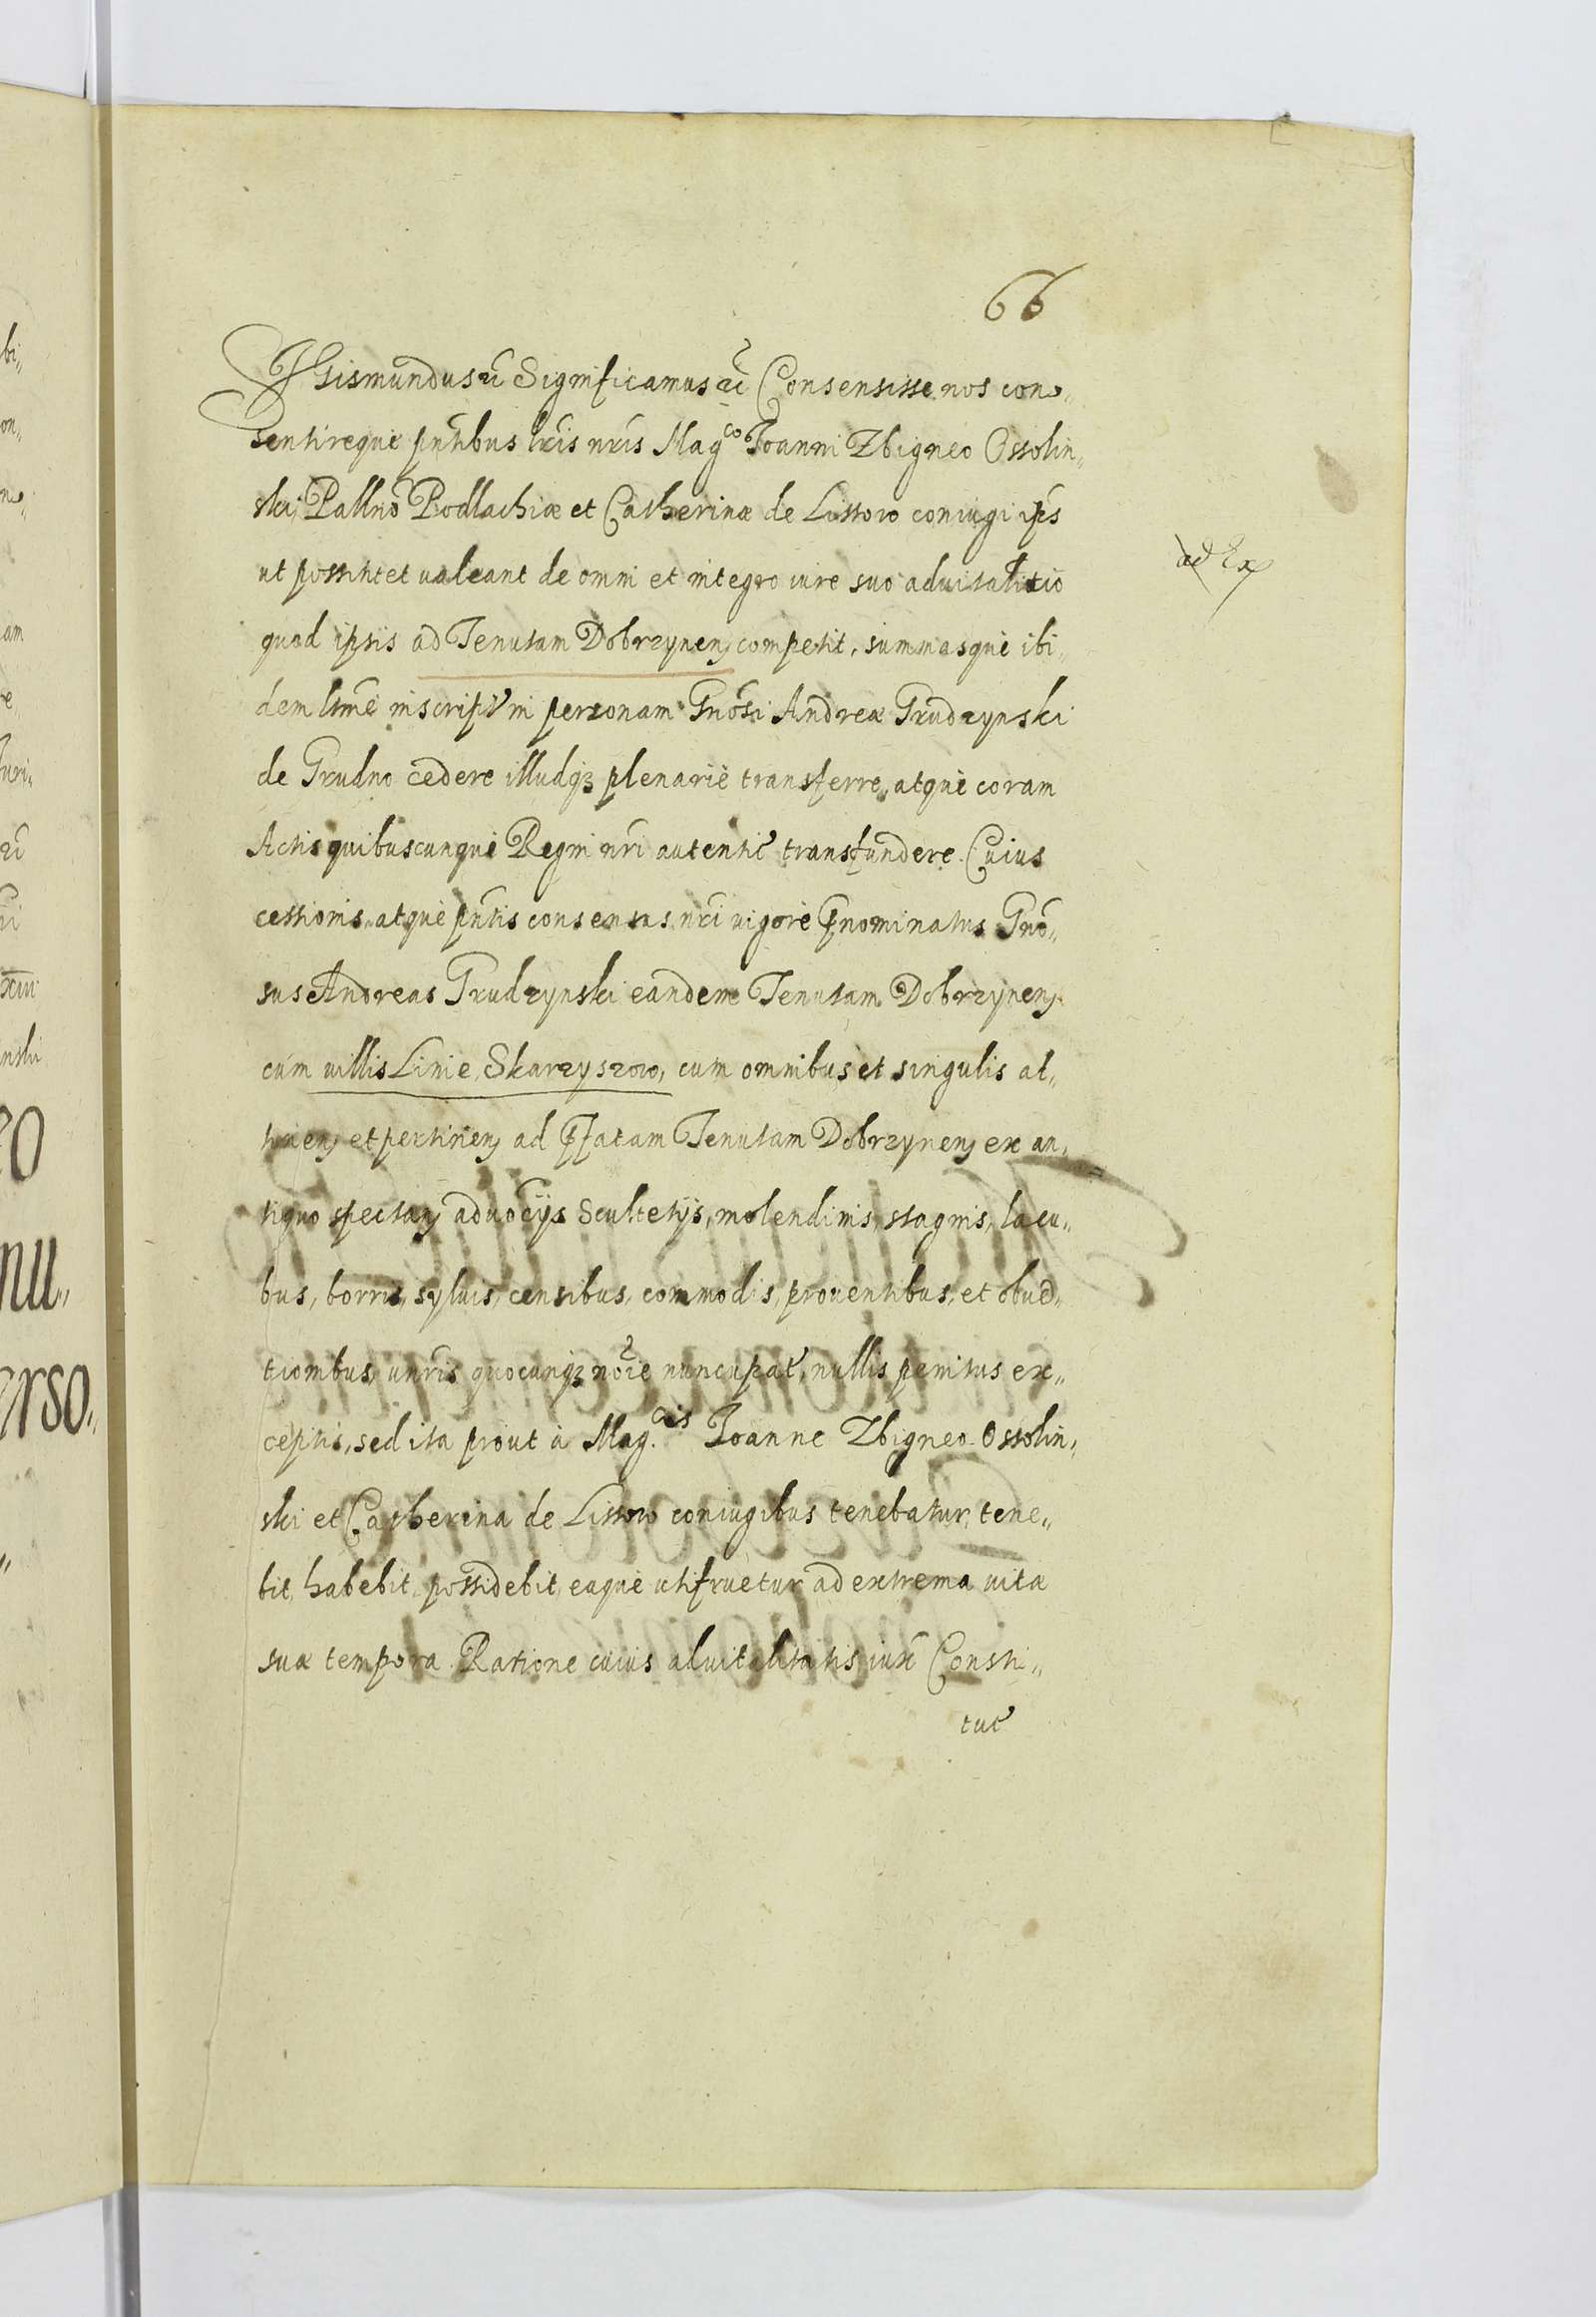 66
Sigismundus rc̃ Significamus ac̃ Consensisse nos con„
sentireque pñtibus lr̃is nr̃is Mag.co Joanni Zbigneo Ossolin„
ski, Pallnõ Podlachiæ et Catherinæ de Lissow coniugi ips̃
ad Ex
ut possint et ualeant de omni et integro iure suo aduitalitio
quod ipsis ad Tenutam Dobrzynen̨ competit, summasque ibi„
dem ltmẽ inscript in personam Gnõsi Andreæ Grudzynski
de Grudno cedere illudqȝ plenariè transferre, atquè coram
Actis quibuscunquè Regni nr̃i autentic̃ transfundere. Cuius
cessionis atquè pñtis consensus nr̃i uigorè p̃nominatus Gnõ„
sus Andreas Grudzynski eandem Tenutam Dobrzynen̨
cum uillis Linie, Skarzyszow, cum omnibus et singulis at„
tinen̨ et pertinen̨ ad p̃fatam Tenutam Dobrzynen̨ ex an„
tiquo spectan̨ aduoc̃ijs Scultetijs, molendinis, stagnis, lacu„
bus, borris, syluis, censibus, commodis, prouentibus, et obued„
tionibus, unr̃is quocunqȝ nõie nuncupat̃, nullis penitus ex„
ceptis, sed ita prout à Mag.cis Joanne Zbigneo Ossolin„
ski et Catherina de Lissow coniugibus tenebatur, tene„
bit, habebit, possidebit, eaquè utifruetur ad extrema uitæ
suæ tempora. Ratione cuius aduitalitatis iuxᷓ Consti„
tut̃